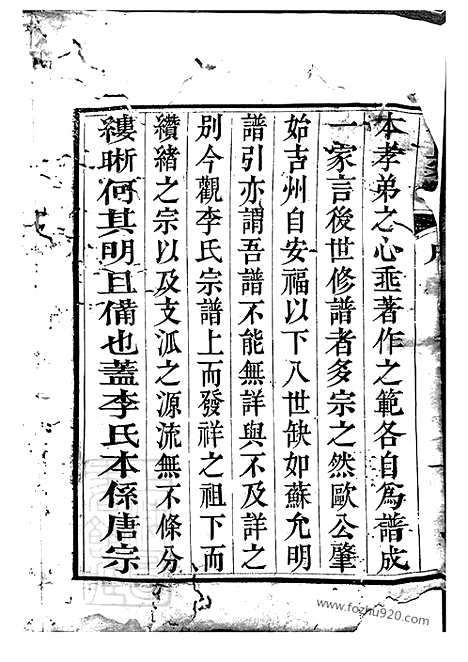 本孝弟之心垂著作之範各自為譜成
一家言後世修譜者多宗之然歐公肇
始吉州自安福以下八世缺如蘇允明
譜引亦謂吾譜不能無詳與不及詳之
別今觀李氏宗譜上而發祥之祖下而
纘緒之宗以及支派之源流無不條分
縷晰何其明且備也蓋李氏本係唐宗
www.fozhu920.com